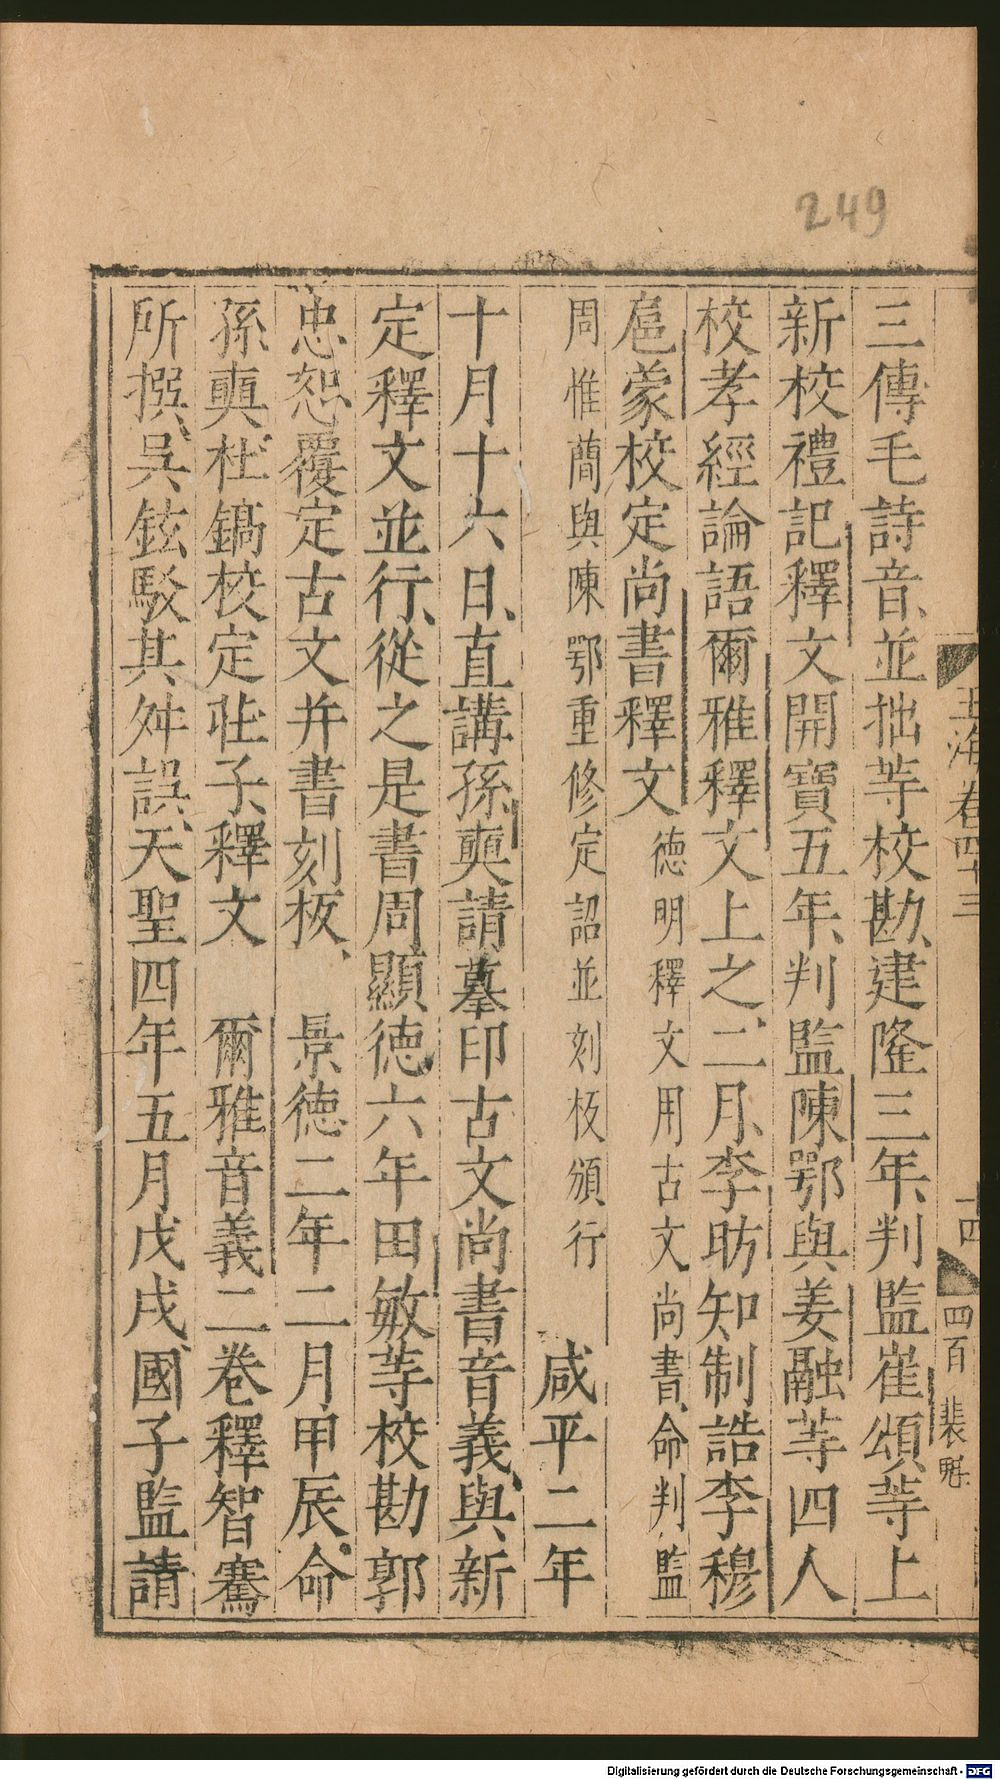 249
三傳毛詩音、並拙等校勘、建隆三年、判監崔頌等上
新校禮記釋文開寶五年、判監陳鄂與姜融等四人
校孝經論語爾雅釋文上之、二月、李昉知制誥李穆
扈蒙校定尚書釋文德明釋文用古文尚書、命判監
周惟蕳與陳鄂重修定詔並刻板頒行　咸平二年
十月十六日、直講孫奭請摹印古文尚書音義、與新
定釋文並行、從之是書周顯德六年田敏等校勘郭
忠恕覆定古文并書刻板、　景德二年二月甲辰、命
孫奭、杜鎬校定莊子、釋文　爾雅音義二卷釋智騫
所撰、吳鉉駁其舛誤、天聖四年五月戊戌、國子監請
玉海卷四十三
十四
四百
裴魁
Digitalisierung gefördert durch die Deutsche Forschungsgemeinschaft - DFG